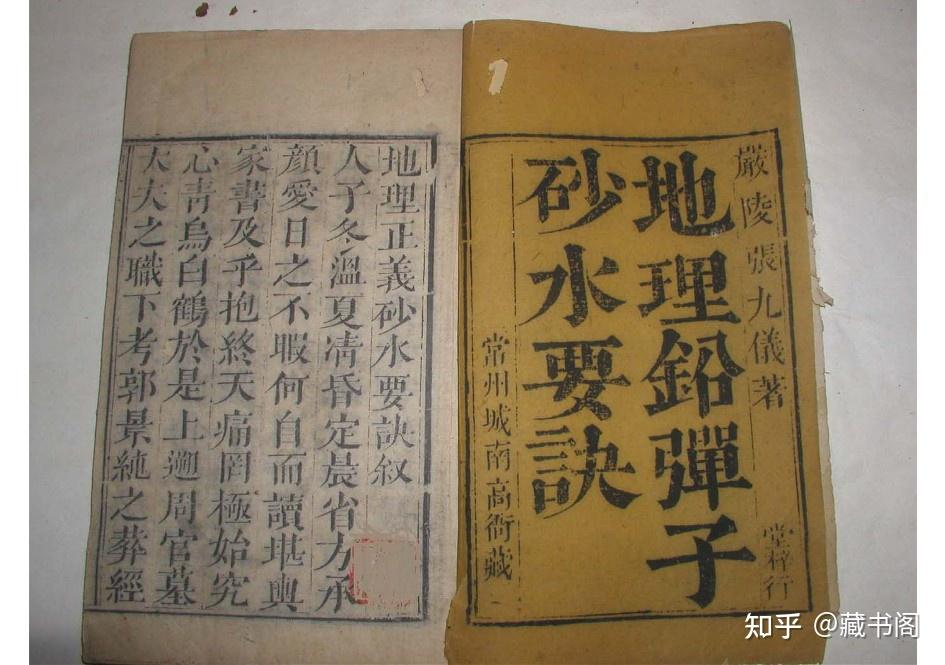 嚴陵張九儀著
堂梓行
地理鉛彈子
砂水要訣
常州城南高衙藏
地理正義砂水要訣叙
人子冬溫夏凊昏定晨省方承
顏愛日之不暇何自而讀堪輿
家書及乎抱終天痛罔極始究
心青烏白鶴於是上遡周官墓
大夫之職下考郭景純之葬經
知乎 @藏书阁